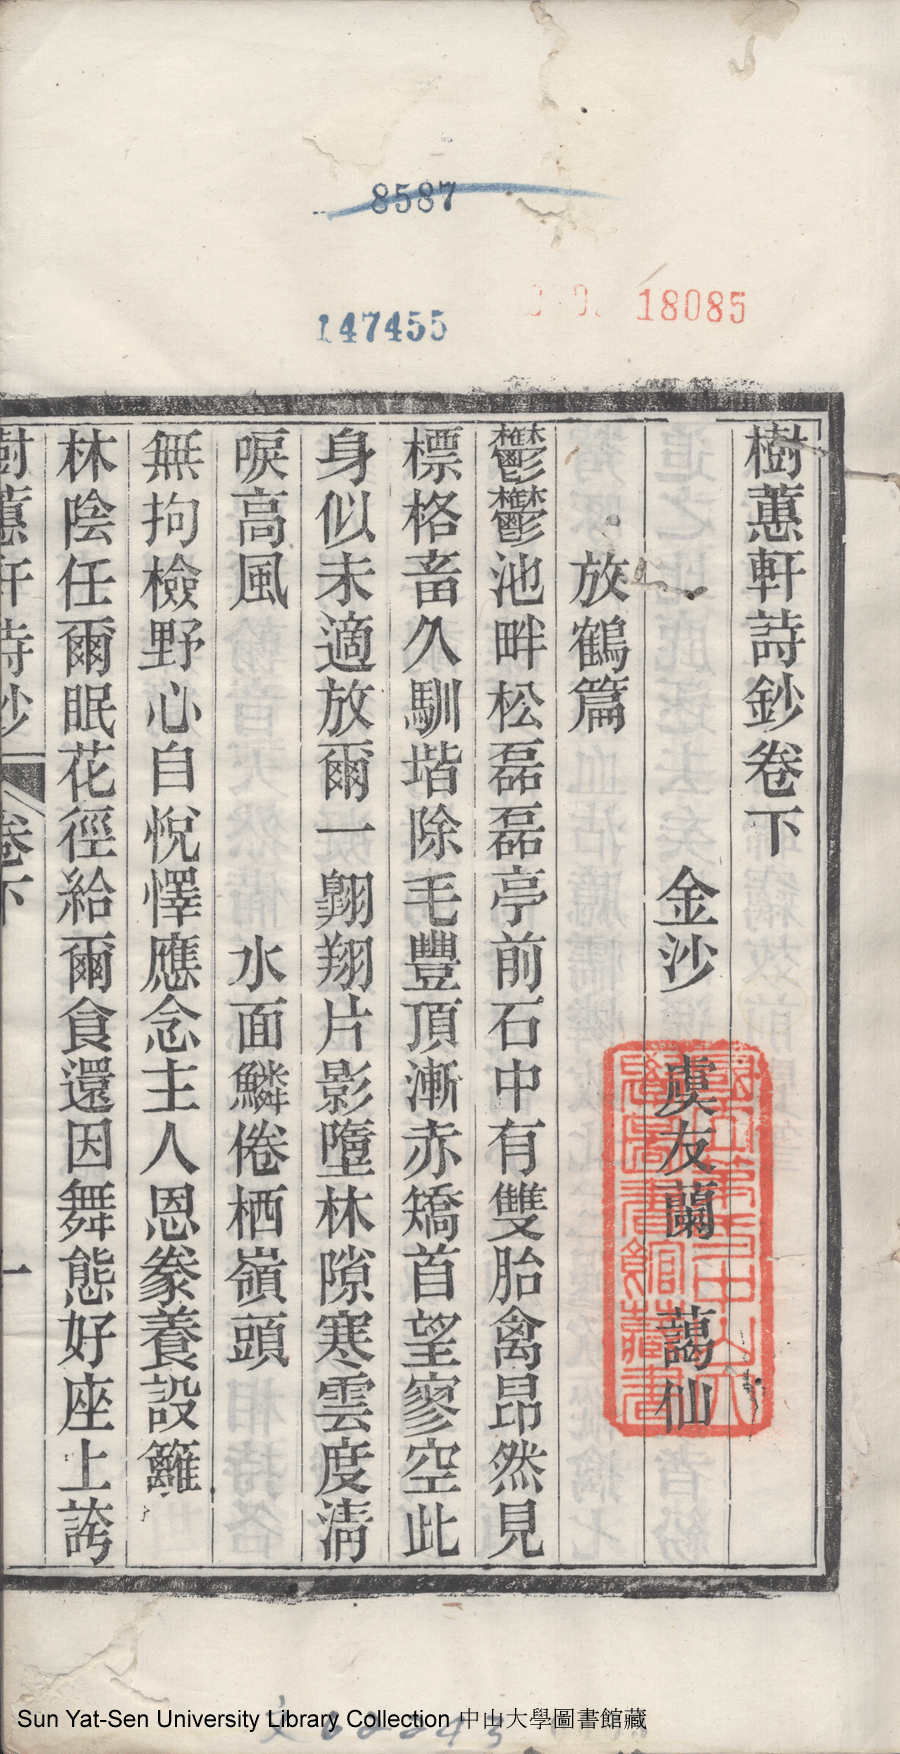 8587
147455
18085
樹蕙軒詩鈔卷下
金沙 虞友蘭 藹仙
放鶴篇
鬱鬱池畔松磊磊亭前石中有雙胎禽昂然見
標格畜久馴堦除毛豐頂漸赤矯首望寥空此
身似未適放爾一翺翔片影墮林隙寒雲度淸
唳高風 水面鱗倦栖嶺頭
無拘檢野心自悅懌應念主人恩豢養設籬
林陰任爾眠花徑給爾食還因舞態好座上誇
樹蕙軒詩鈔 卷下 一
Sun Yat-Sen University Library Collection 中山大學圖書館藏